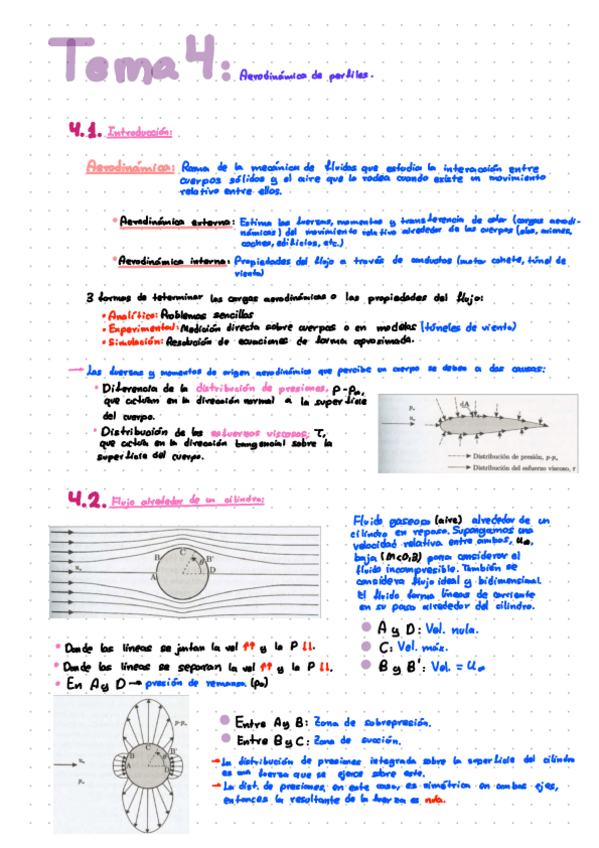 Tema 4: Aerodinámica de perfiles.
4.1. Introducción:
Aerodinámica: Rama de la mecánica de fluidos que estudia la interacción entre
cuerpos sólidos y el aire que lo rodea cuando existe un movimiento
relativo entre ellos.
Aerodinámica externa: Estima las fuerzas, momentos y transferencia de calor (cargas aerodi-
námicas) del movimiento relativo alrededor de los cuerpos (alas, aviones,
coches, edificios, etc.)
Aerodinámica interna: Propiedades del flujo a través de conductos (motor cohete, túnel de
viento)
3 formas de determinar las cargas aerodinámicas o las propiedades del flujo:
• Analítico: Problemas sencillos
• Experimental: Medición directa sobre cuerpos o en modelos (túneles de viento)
• Simulación: Resolución de ecuaciones de forma aproximada.
→ Las fuerzas y momentos de origen aerodinámico que percibe un cuerpo se deben a dos causas:
• Diferencia de la distribución de presiones, P-P∞,
que actúan en la dirección normal a la superficie
del cuerpo.
• Distribución de los esfuerzos viscosos, τ,
que actúan en la dirección tangencial sobre la
superficie del cuerpo.
dA
p∞
u∞
Distribución de presión, p-p∞
Distribución del esfuerzo viscoso, τ
4.2. Flujo alrededor de un cilindro:
Fluido gaseoso (aire) alrededor de un
cilindro en reposo. Supongamos una
velocidad relativa entre ambos, u∞,
baja (M<0,3) para considerar el
fluido incompresible. También se
considera flujo ideal y bidimensional.
El fluido forma líneas de corriente
en su paso alrededor del cilindro.
u∞
A B C B' D θ
A y D: Vel. nula.
C: Vel. máx.
B y B': Vel. = U∞
• Donde las líneas se juntan la vel ↑↑ y la P ↓↓.
• Donde las líneas se separan la vel ↑↑ y la P ↓↓.
• En A y D → presión de remanso (p₀)
p-p∞
u∞
p∞
A B C B' D
Entre A y B: Zona de sobrepresión.
Entre B y C: Zona de succión.
→ La distribución de presiones integrada sobre la superficie del cilindro
es una fuerza que se ejerce sobre este.
→ La dist. de presiones, en este caso, es simétrica en ambos ejes,
entonces la resultante de la fuerza es nula.